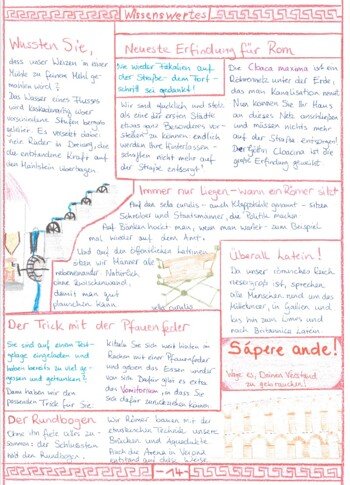 Wissenswertes
Wussten Sie,
dass unser Weizen in einer
Mühle zu feinem Mehl ge-
mahlen wird?
Das Wasser eines Flusses
wird kaskadenartig über
verschiedene Stufen bergab
geleitet. Es versetzt dabei
viele Räder in Drehung, die
die entstandene Kraft auf
den Mahlstein übertragen
Neueste Erfindung für Rom
Nie wieder Fäkalien auf
der Straße - dem Fort-
schritt sei gedankt!
Wir sind glücklich und stolz
als eine der ersten Städte
etwas ganz Besonderes vor-
stellen zu können: endlich
werden Ihre Hinterlassen-
schaften nicht mehr auf
der Straße entsorgt!
Die Cloaca maxima ist ein
Rohrenetz unter der Erde,
das man Kanalisation nennt
Nun können Sie Ihr Haus
an dieses Netz anschließen
und müssen nichts mehr
auf der Straße entsorgen!
Der Göttin Cloacina ist die
große Erfindung geweiht
Immer nur Liegen - wann ein Römer sitzt
Auf den sela curulis - auch Klappstühle genannt - sitzen
Schreiber und Staatsmänner, die Politik machen
Auf Bänken hockt man, wenn man wartet - zum Beispiel
mal wieder auf dem Amt.
Und auf den öffentlichen Latrinen
sitzen wir Männer alle
nebeneinander Natürlich
ohne Zwischenwand,
damit man gut
plauschen kann
sela curulis
Überall Latein!
Da unser römisches Reich
riesengroß ist, sprechen
alle Menschen rund um das
Mittelmeer, in Gallien und
bis hin zum Limes und
nach Britannica Latein
Der Trick mit der Pfauenfeder
Sie sind auf einem Fest-
gelage eingeladen und
haben bereits zu viel ge-
gessen und getrunken?
Dann haben wir den
passenden Trick für Sie:
Kitzeln Sie sich weit hinten im
Rachen mit einer Pfauenfeder
und geben das Essen wieder
von sich Dafür gibt es extra
das Vomitorium, in dass Sie
sich dafür zurückziehen können
Sápere ande!
Wage es, Deinen Verstand
zu gebrauchen!
Der Rundbogen
Ohne ihn fiele alles zu-
sammen: der Schlussstein
mit den Rundbögen.
Wir Römer bauen mit der
etruskischen Technik unsere
Brücken und Aquädukte
Auch die Arena in Verona
entstand auf diese Weise
- 14 -